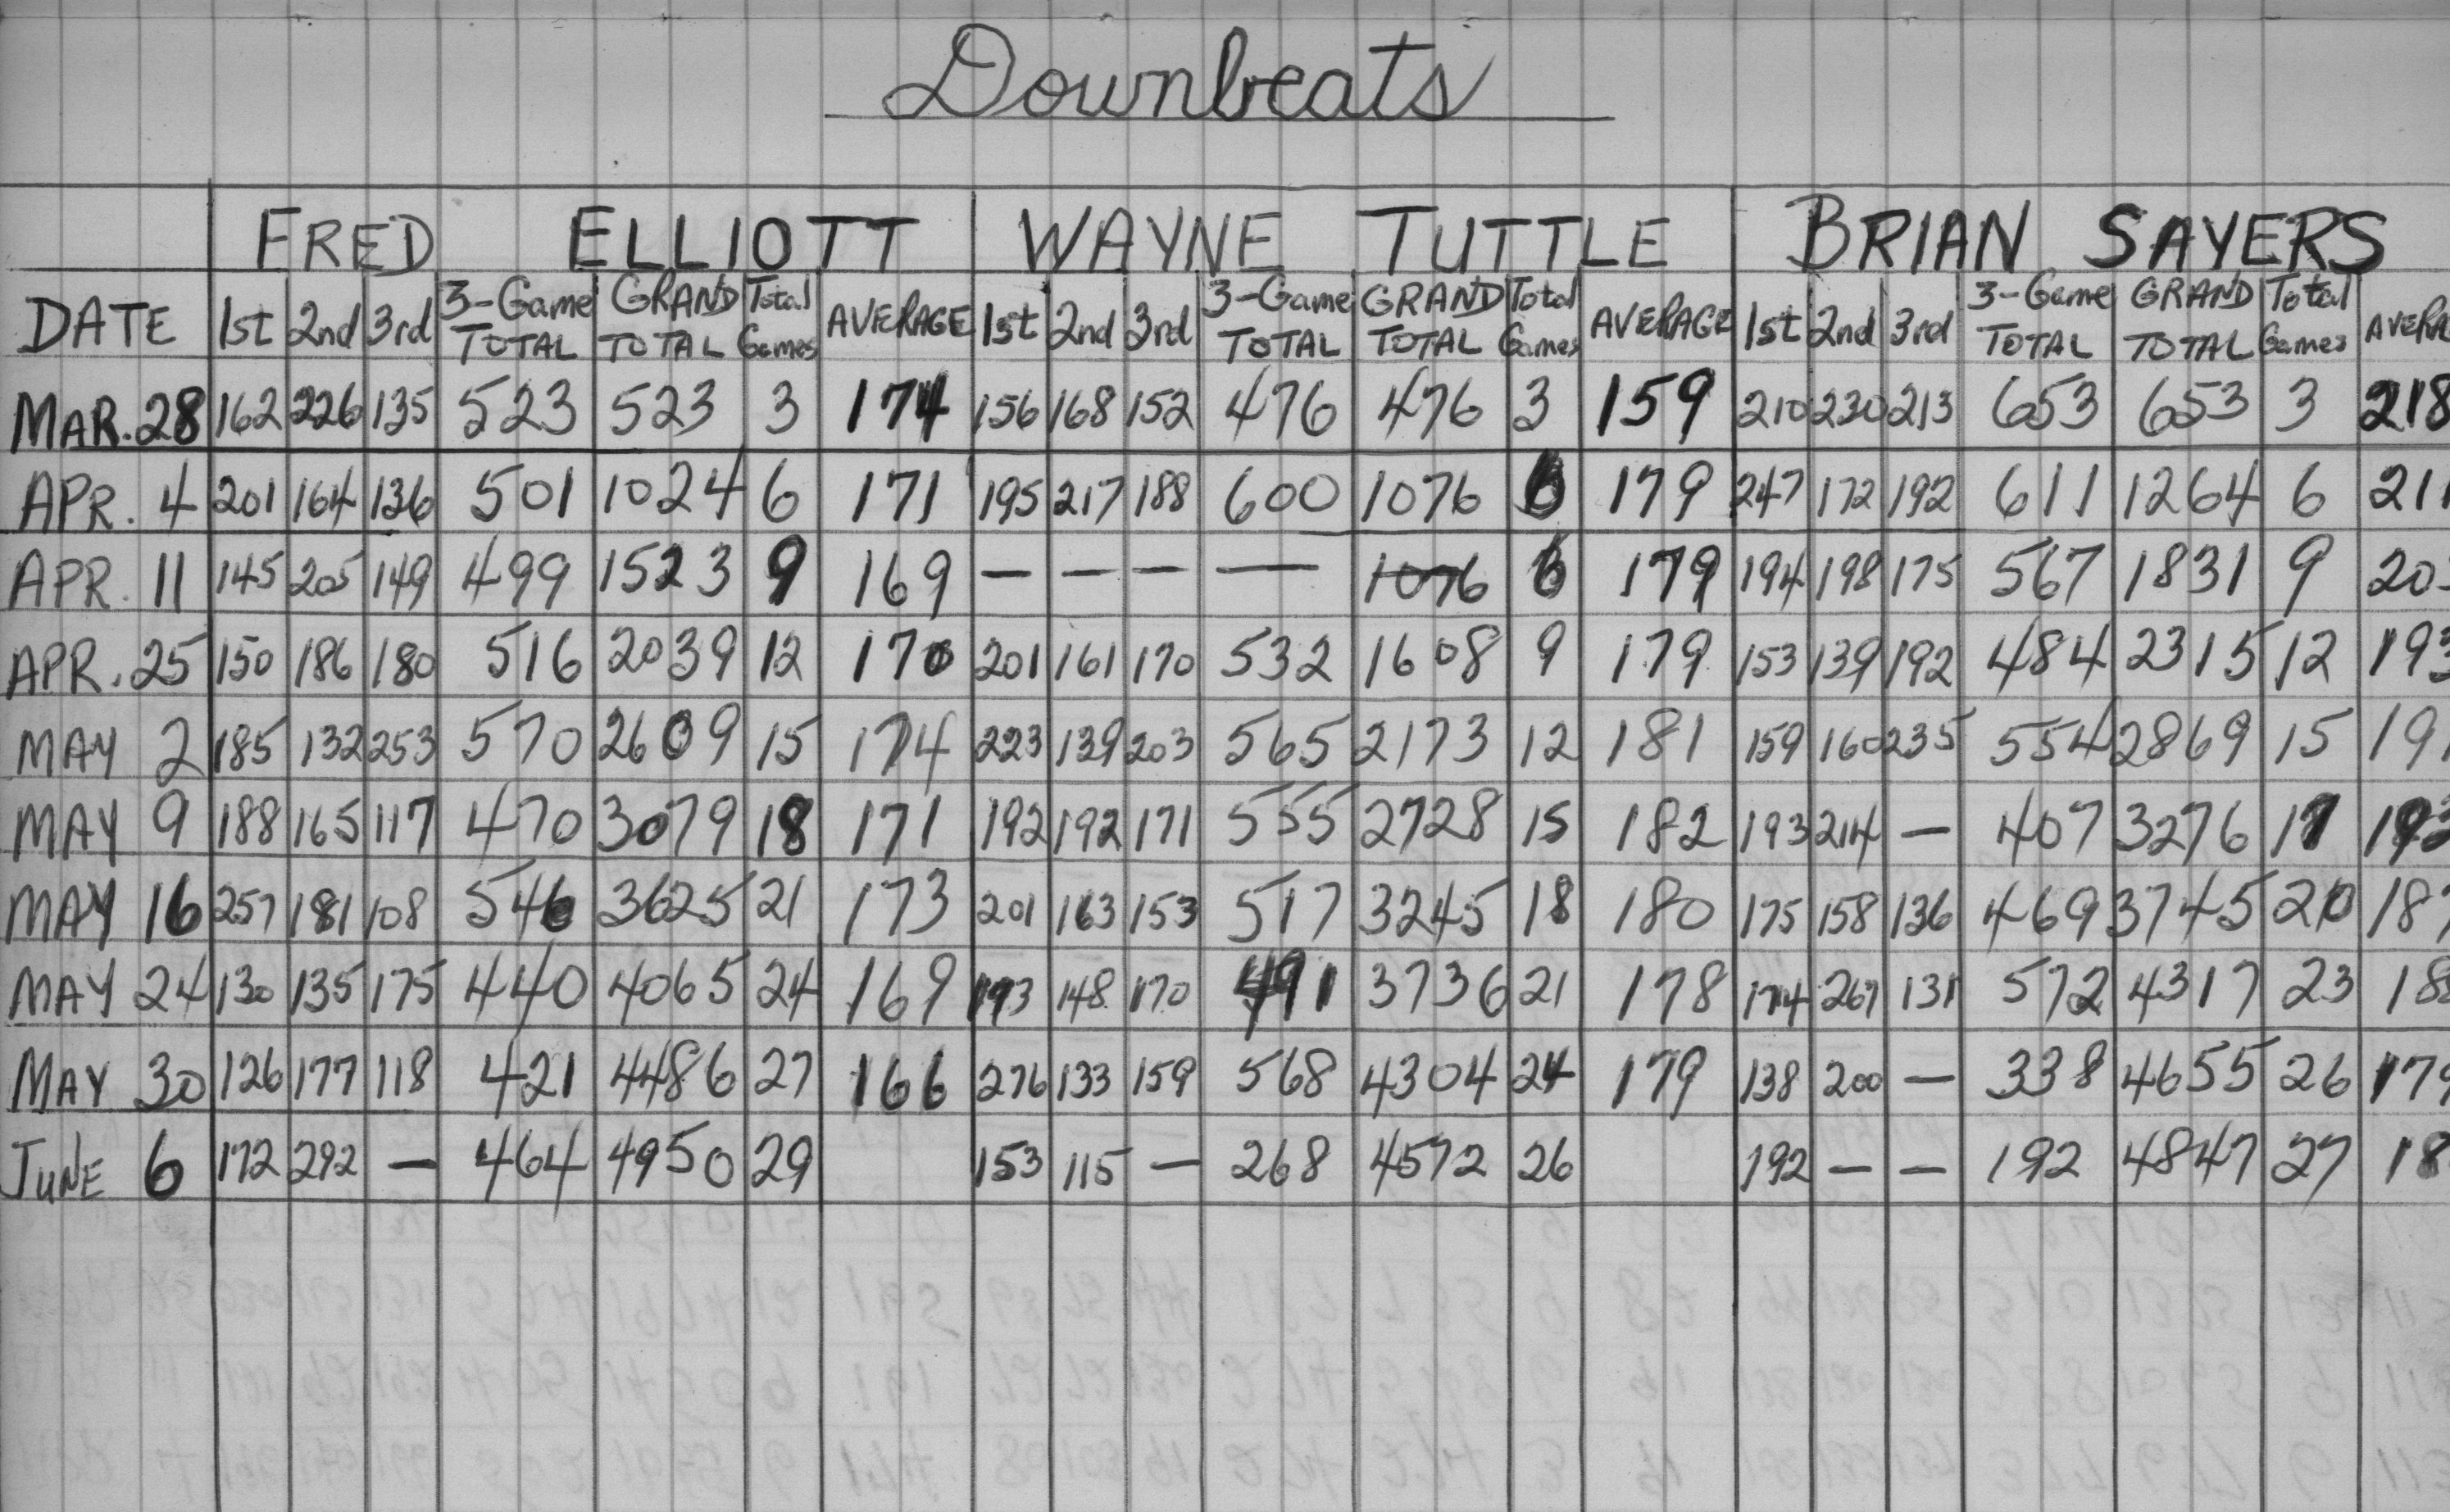 Downbeats
FRED ELLIOTT WAYNE TUTTLE BRIAN SAYERS
DATE 1st 2nd 3rd 3-Game TOTAL GRAND TOTAL Total Games AVERAGE 1st 2nd 3rd 3-Game TOTAL GRAND TOTAL Total Games AVERAGE 1st 2nd 3rd 3-Game TOTAL GRAND TOTAL Total Games AVERA
MAR. 28 162 226 135 523 523 3 174 156 168 152 476 476 3 159 210 230 213 653 653 3 218
APR. 4 201 164 136 501 1024 6 171 195 217 188 600 1076 6 179 247 172 192 611 1264 6 211
APR. 11 145 205 149 499 1523 9 169 — — — — 1076 6 179 194 198 175 567 1831 9 203
APR. 25 150 186 180 516 2039 12 170 201 161 170 532 1608 9 179 153 139 192 484 2315 12 193
MAY 2 185 132 253 570 2609 15 174 223 139 203 565 2173 12 181 159 160 235 554 2869 15 191
MAY 9 188 165 117 470 3079 18 171 192 192 171 555 2728 15 182 193 214 — 407 3276 17 193
MAY 16 257 181 108 546 3625 21 173 201 163 153 517 3245 18 180 175 158 136 469 3745 20 187
MAY 24 130 135 175 440 4065 24 169 193 148 170 491 3736 21 178 174 267 131 572 4317 23 188
MAY 30 126 177 118 421 4486 27 166 276 133 159 568 4304 24 179 138 200 — 338 4655 26 179
JUNE 6 172 292 — 464 4950 29 153 115 — 268 4572 26 192 — — 192 4847 27 18